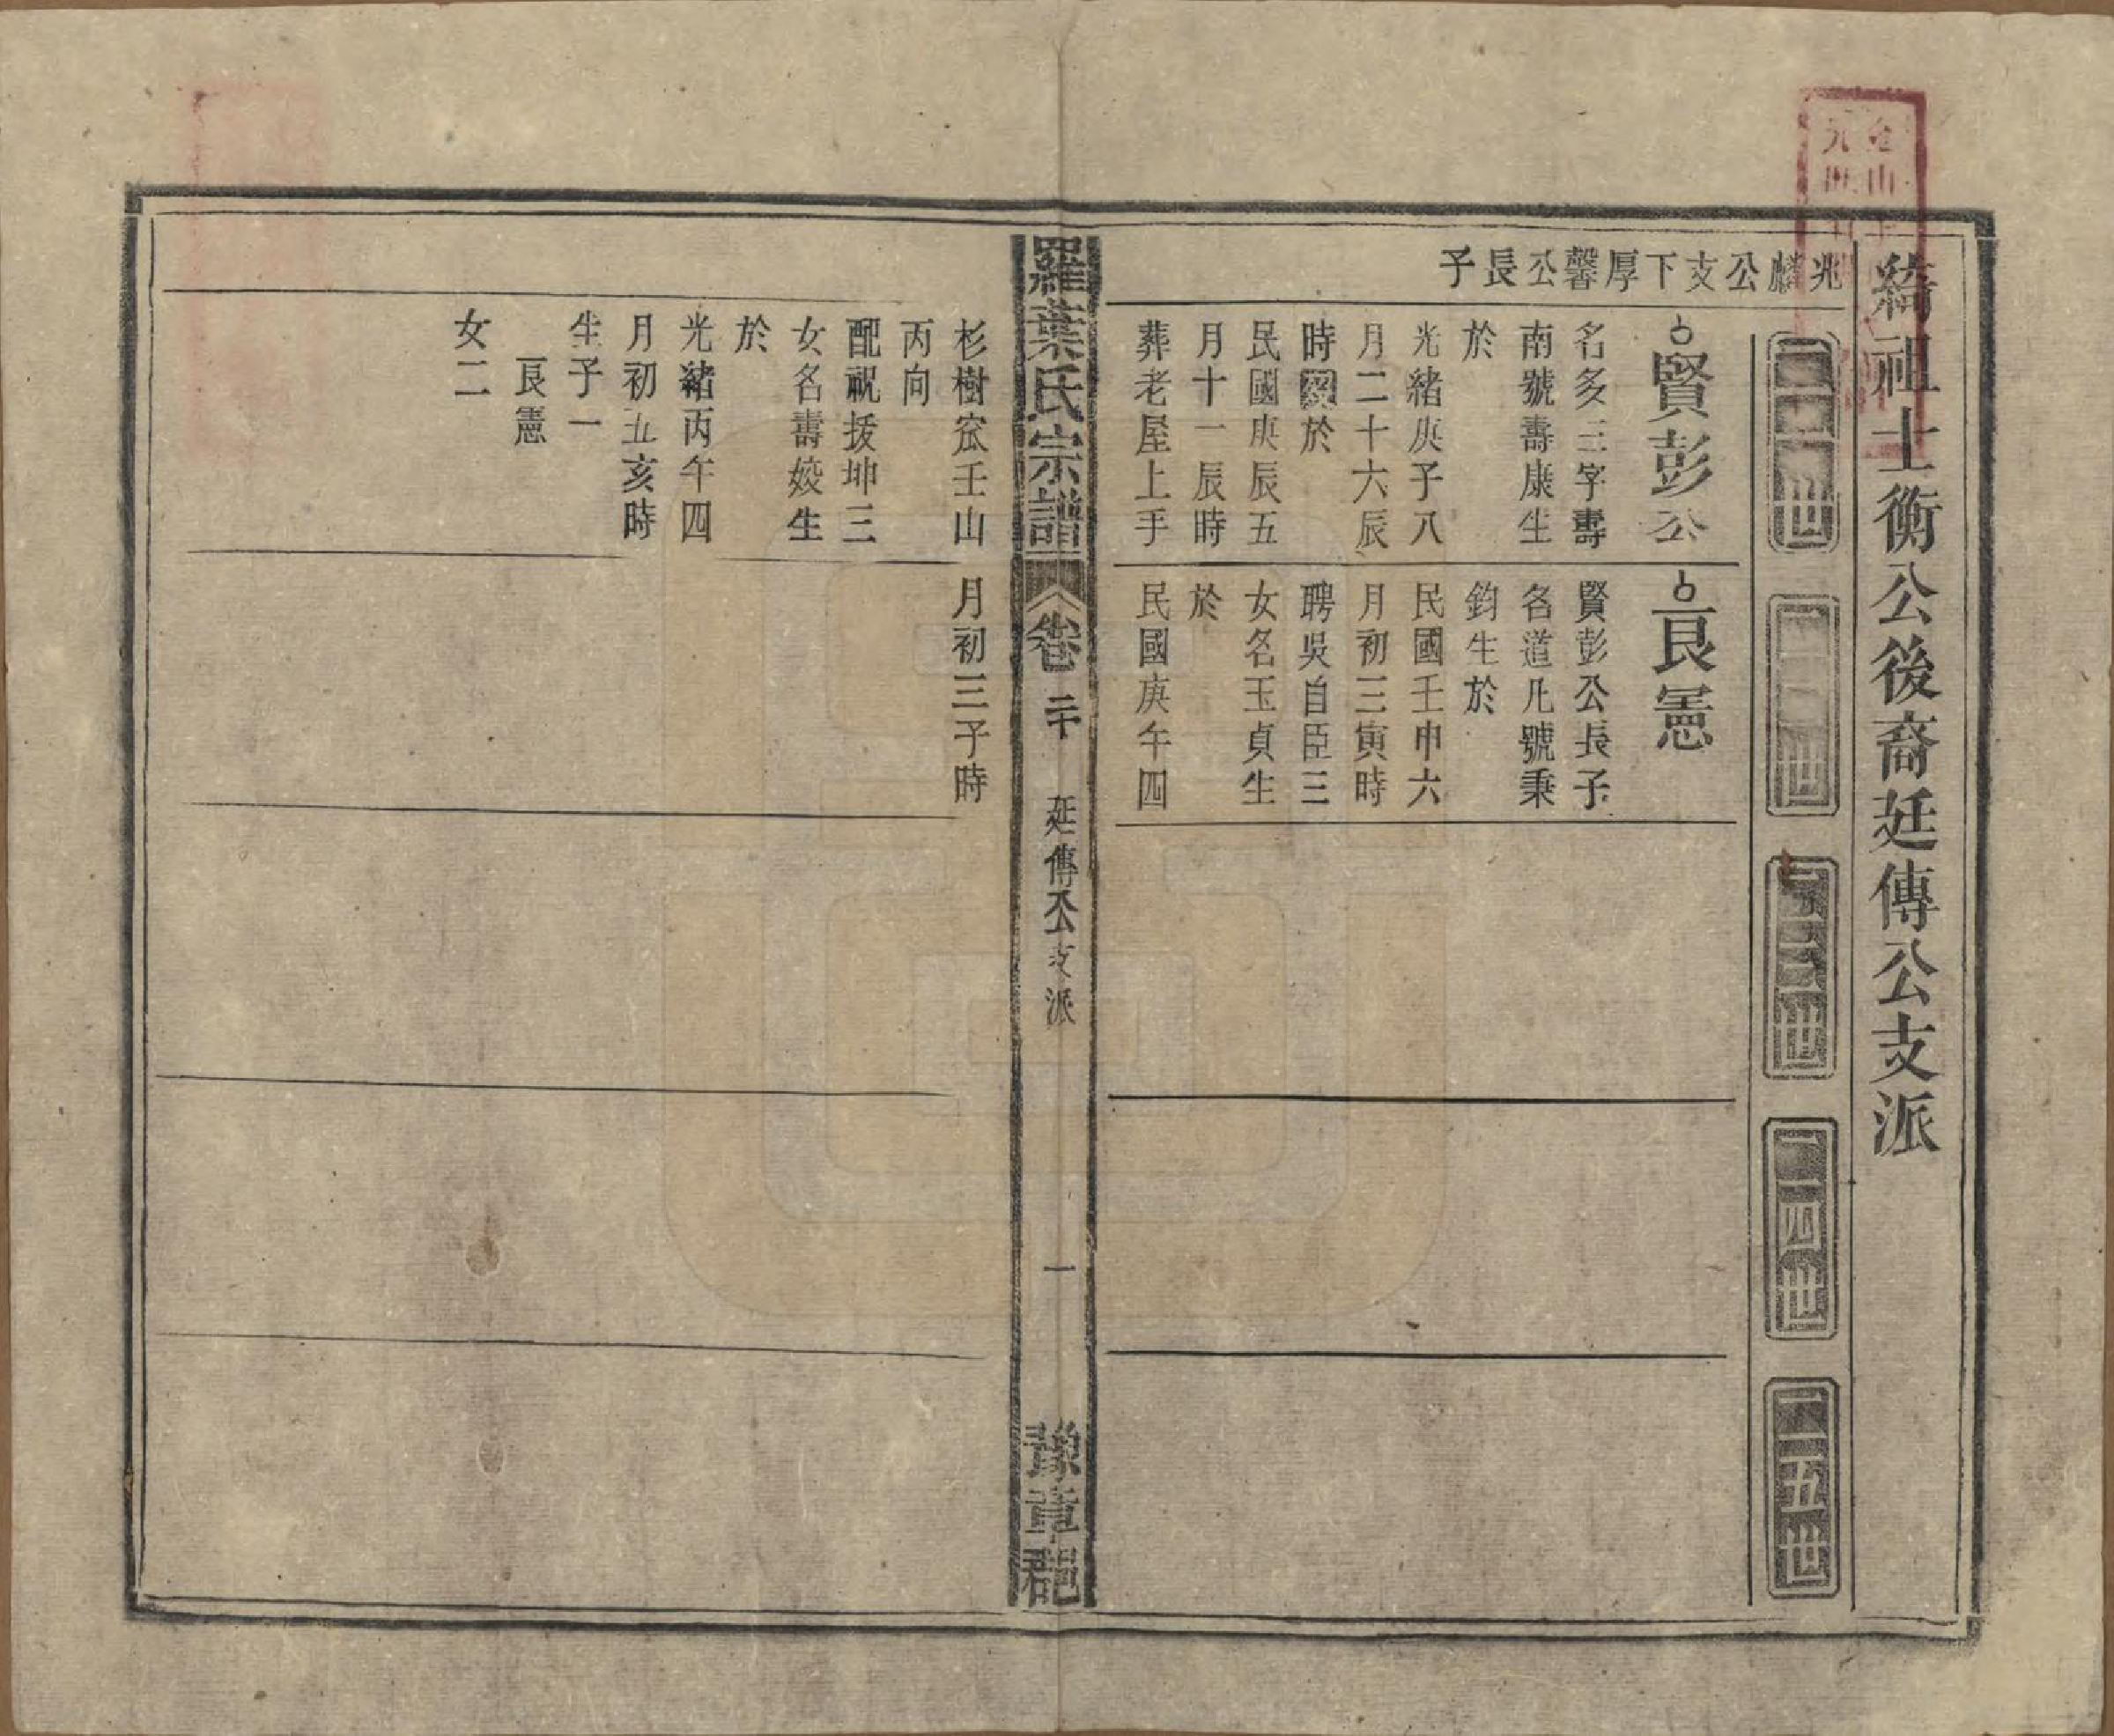 綺祖士衡公後裔廷傳公支派
二一世
二二世
二三世
二四世
二五世
兆麟公支下厚馨公長子
賢彭公
名多三字壽
南號壽康生
於
光緒庚子八
月二十六辰
時歿於
民國庚辰五
月十一辰時
葬老屋上手
良憲
賢彭公長子
名道凡號秉
鈞生於
民國壬申六
月初三寅時
聘吳自臣三
女名玉貞生
於
民國庚午四
羅葉氏宗譜
卷二十
廷傳公支派
一
豫章郡
杉樹窊壬山
丙向
配祝拔坤三
女名壽姣生
於
光緒丙午四
月初五亥時
生子一
良憲
女二
月初三子時